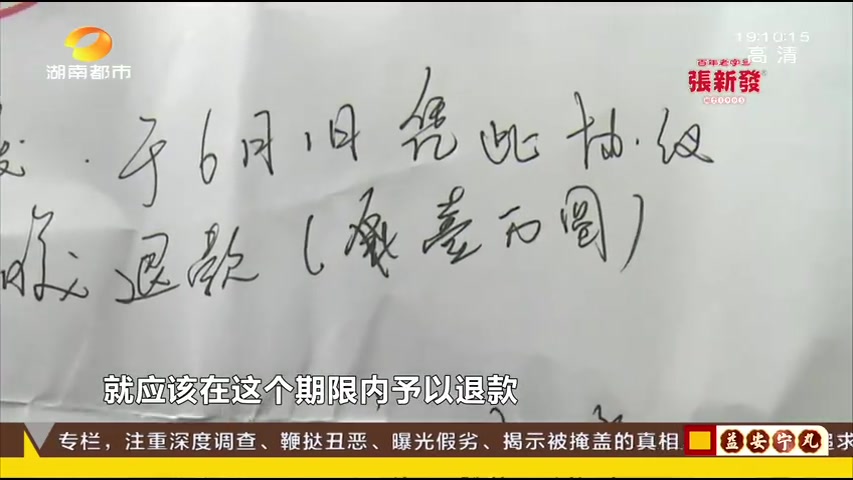 湖南都市
19:10:15
高清
百年老字号
張新發
于6月1日凭此协议
退款（贰壹万圆）
就应该在这个期限内予以退款
专栏，注重深度调查、鞭挞丑恶、曝光假劣、揭示被掩盖的真相
益安宁丸
追求